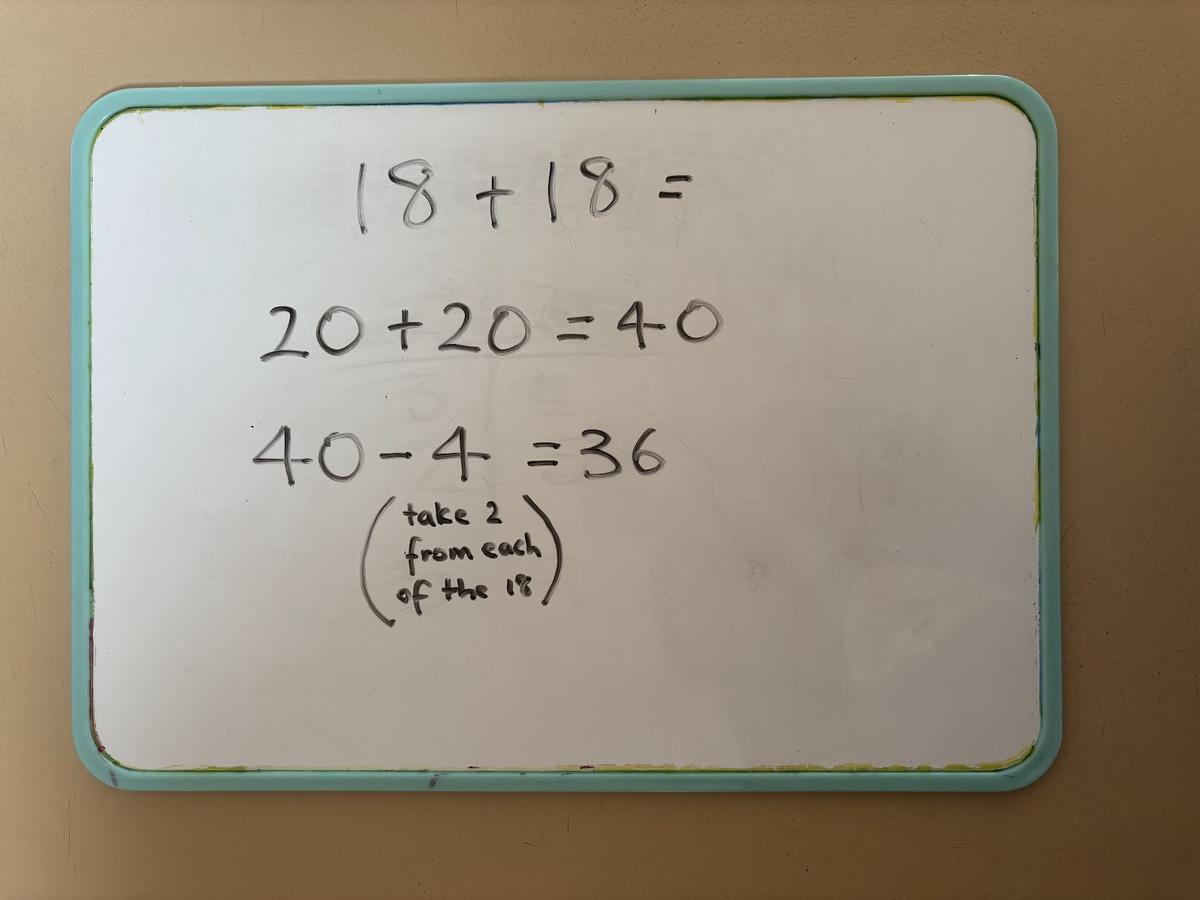 18 + 18 =
20 + 20 = 40
40 - 4 = 36
(take 2
from each
of the 18)